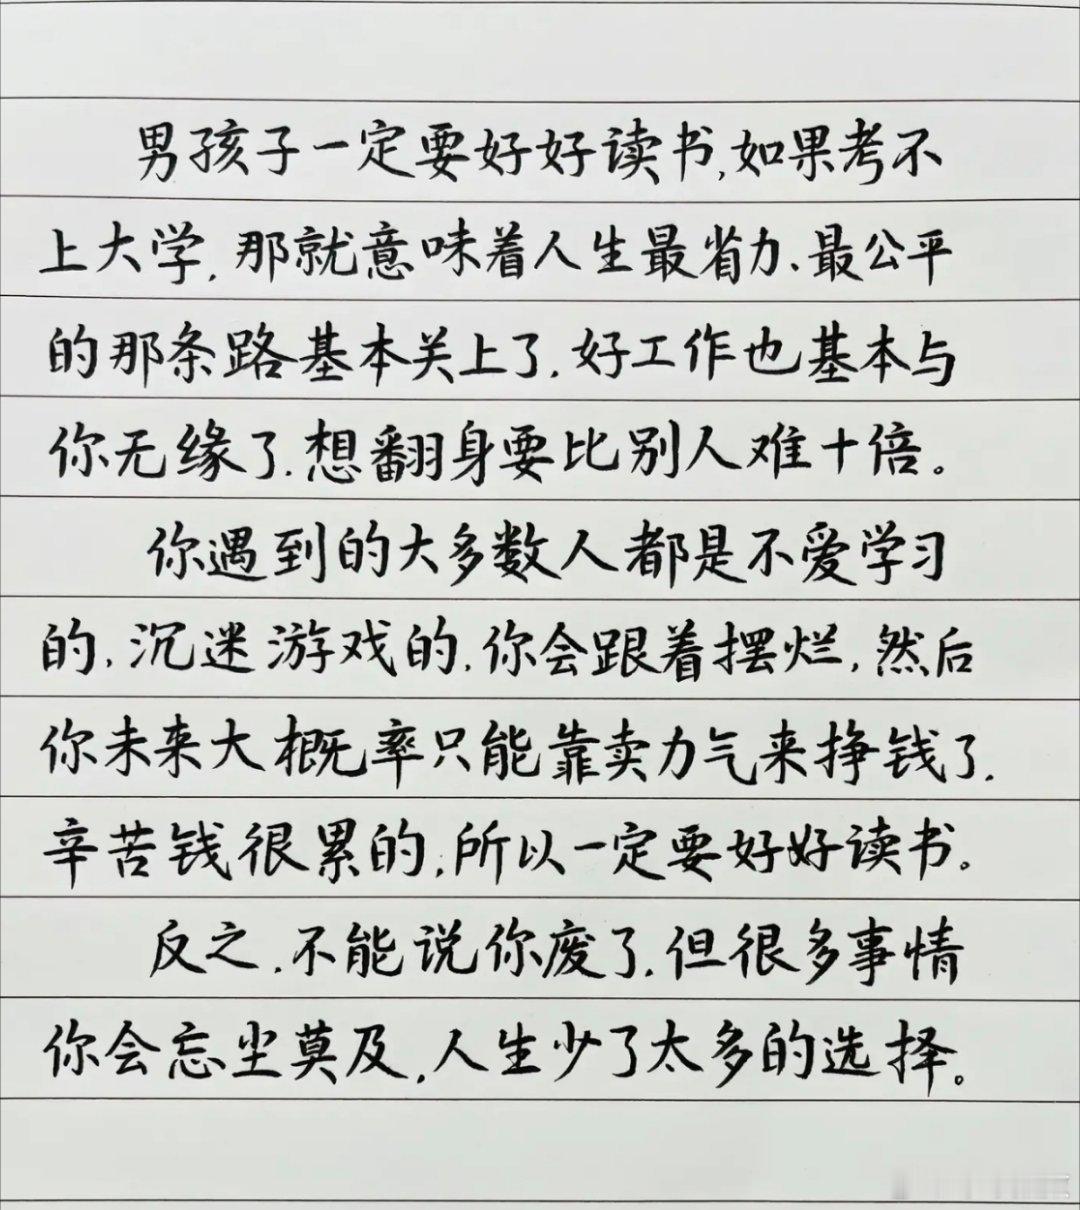 男孩子一定要好好读书,如果考不
上大学,那就意味着人生最省力、最公平
的那条路基本关上了,好工作也基本与
你无缘了,想翻身要比别人难十倍。
你遇到的大多数人都是不爱学习
的,沉迷游戏的,你会跟着摆烂,然后
你未来大概率只能靠卖力气来挣钱了,
辛苦钱很累的,所以一定要好好读书。
反之,不能说你废了,但很多事情
你会忘尘莫及,人生少了太多的选择。